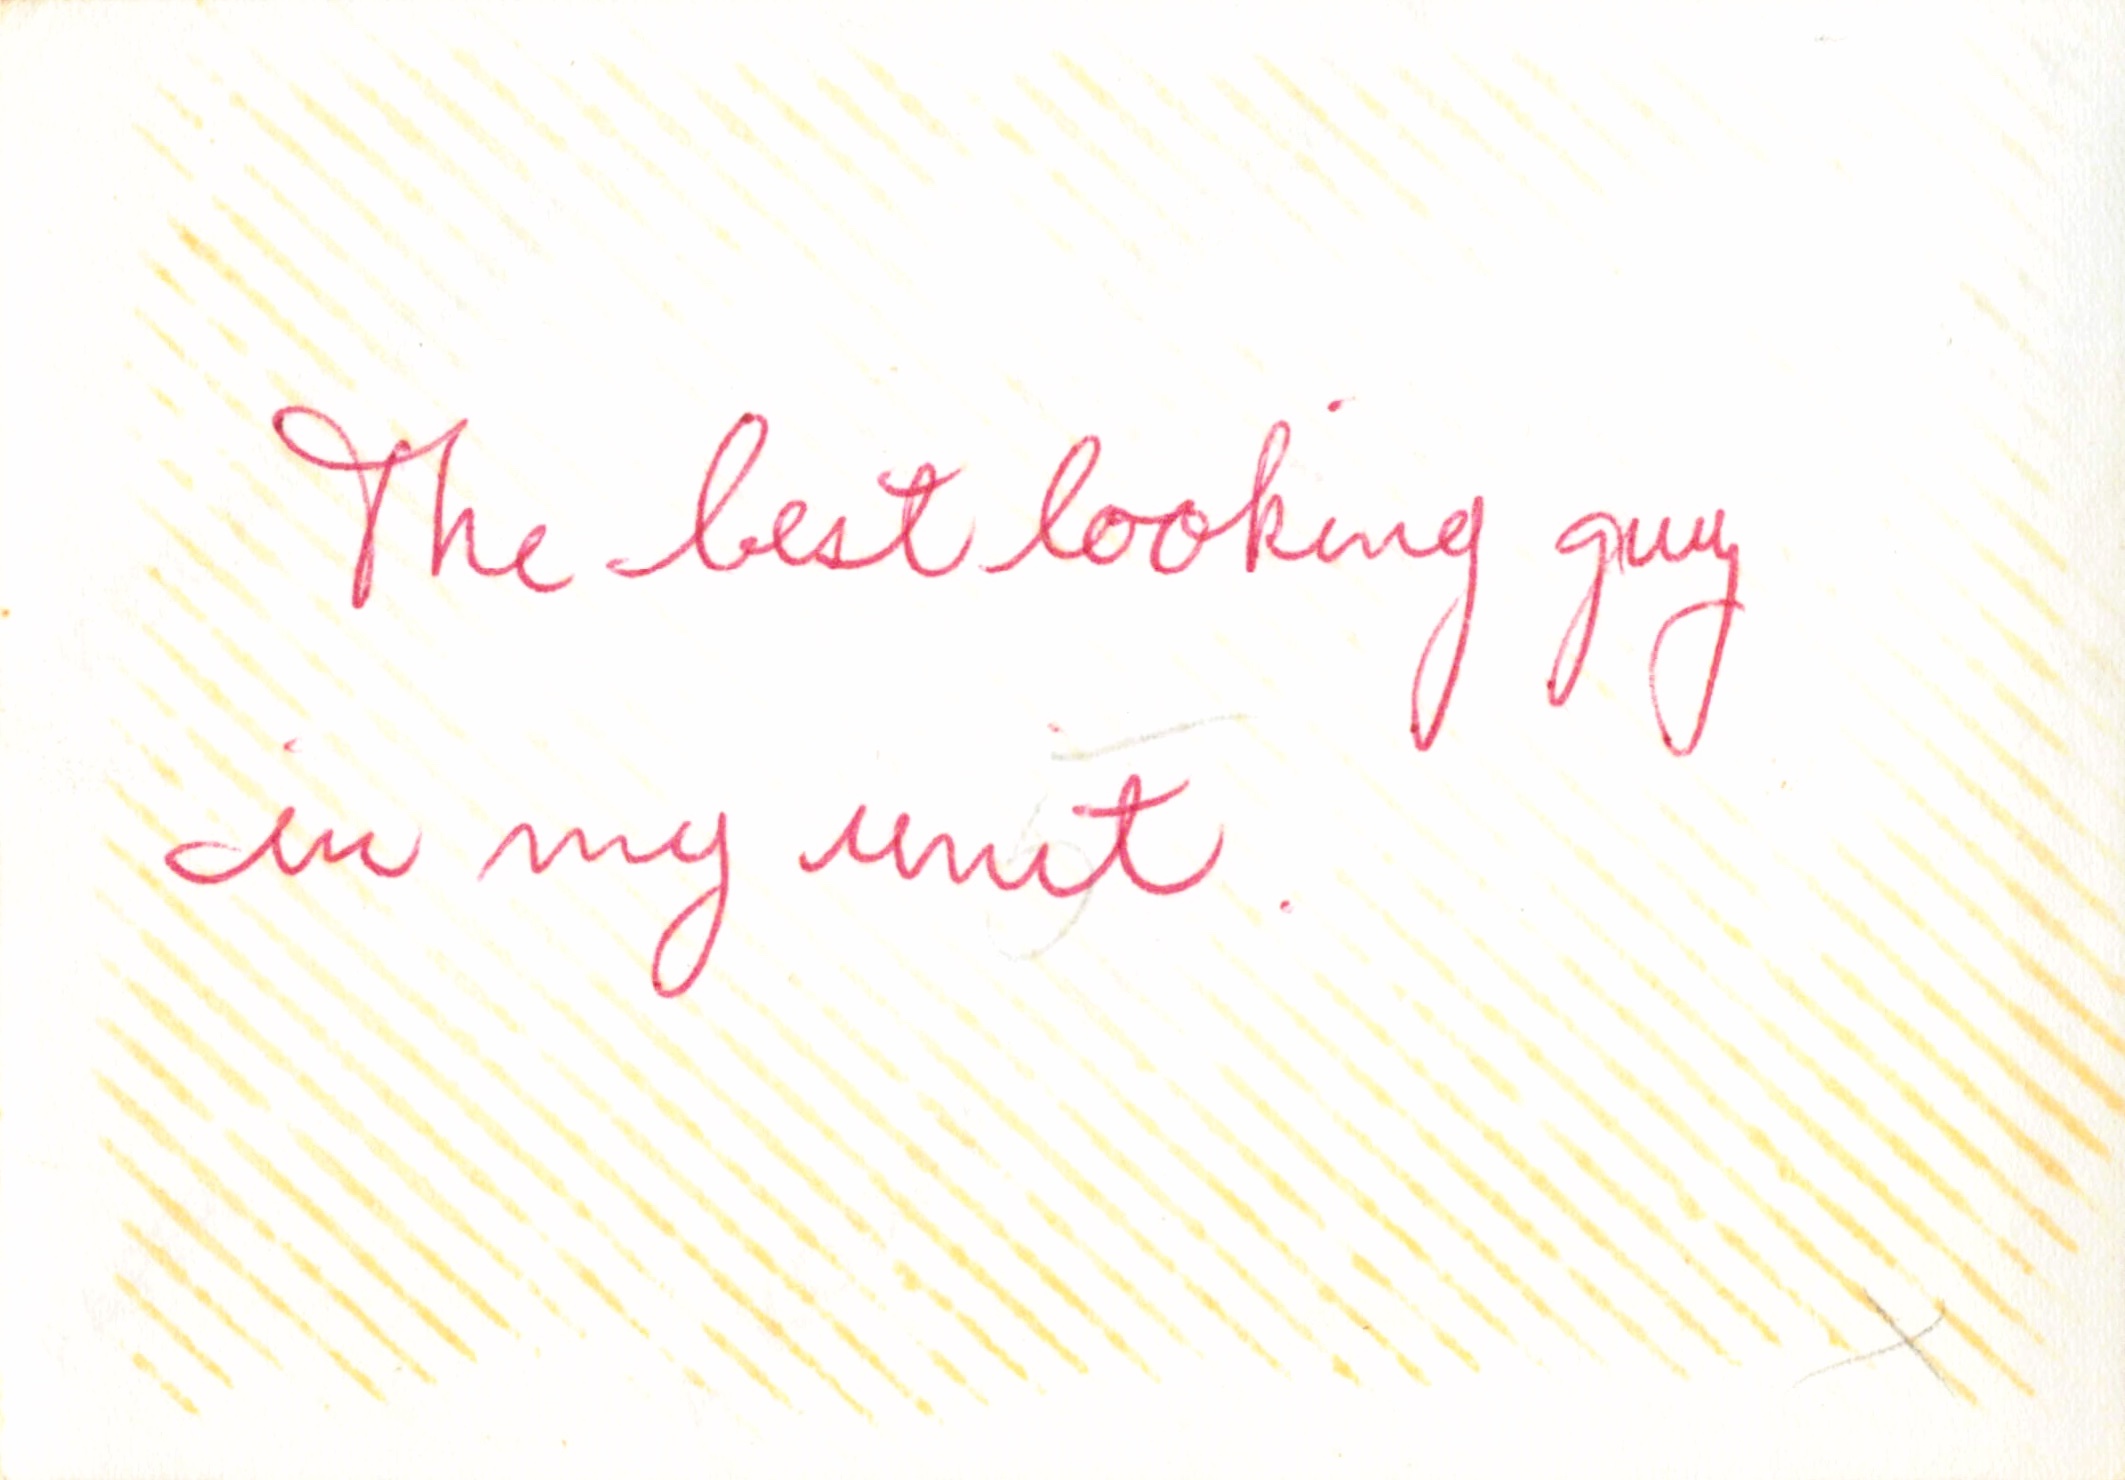 The best looking guy
in my unit.